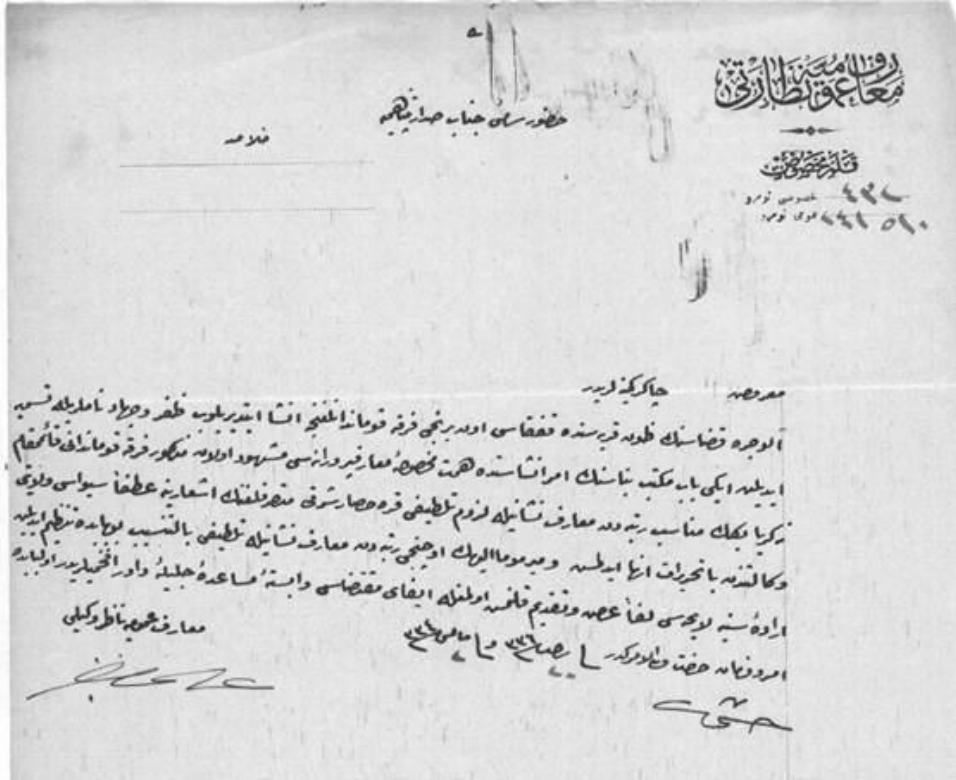 معارف عمومیه نظارتی
قلم مخصوص
خصوصی نومرو ٤٣٢
عمومی نومرو
حضور سامی جناب صدارتپناهی
خلاصه
معروض چاکر کمینه لریدر
الوجره قضاسنك قریه سنده قفقاس اون برنجی فرقه قوماندانلغنجه انشا ایتدیریلوب ظفر وجهاد ناملریله تسمیه
ایدیلن ایکی باب مکتب بناسنك امر انشاسنده همت مخصوصهٔ معارفپرورانه سی مشهود اولان مذکور فرقه قوماندانی قائمقام
زکریا بكك مناسب رتبه دن معارف نشانیله لزوم تلطیفی قره حصار شرقی متصرفلغنك اشعارینه عطفا سیواس ولایتی
وکالتندن با تحریرات انها ایدلمش ومیرمومالیهك اوچنجی رتبه دن معارف نشانیله تلطیفی بالتنسیب اولبابده تنظیم ایدیلن
ارادهٔ سنیه لایحه سی لفا عرض وتقدیم قلنمش اولمغله ایفای مقتضاسی وابستهٔ مساعدهٔ جلیلهٔ داور افخمیلریدر اولبابده
امر وفرمان حضرت من له الامرکدر
معارف عمومیه ناظر وکیلی